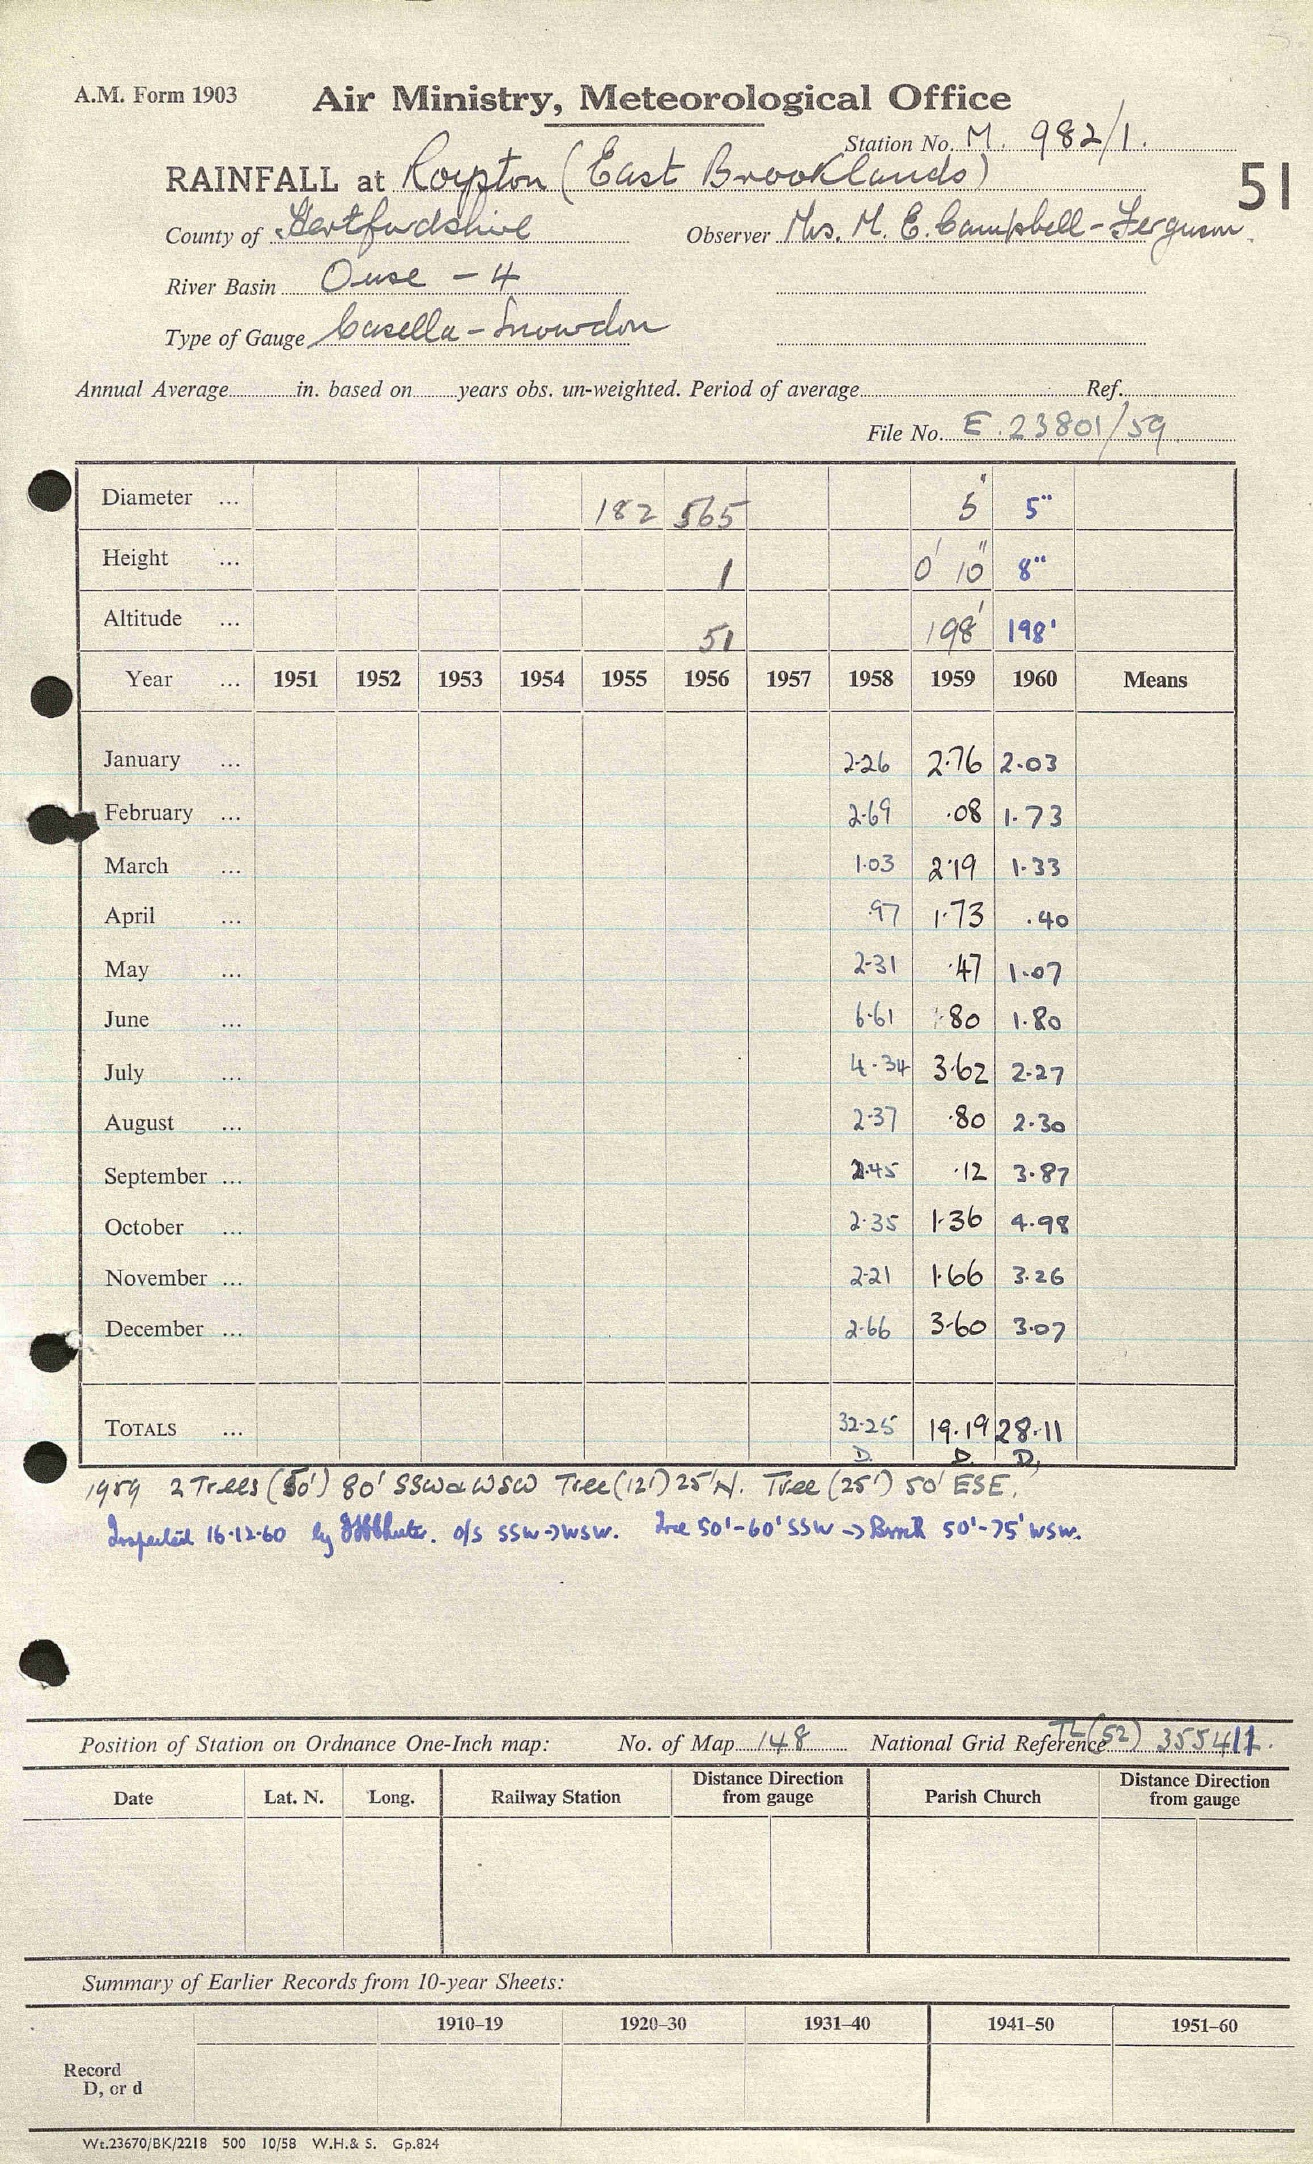 A.M. Form 1903
Air Ministry, Meteorological Office
Station No. M. 982/1.
RAINFALL at Royston (East Brooklands)
51
County of Hertfordshire Observer Mrs. M. E. Campbell-Ferguson.
River Basin Ouse - 4
Type of Gauge Casella - Snowdon
Annual Average in. based on years obs. un-weighted. Period of average Ref.
File No. E. 23801/59
Diameter ... 182 565 5" 5"
Height ... 1 0' 10" 8"
Altitude ... 51 198' 198'
Year ... 1951 1952 1953 1954 1955 1956 1957 1958 1959 1960 Means
January ... 2.26 2.76 2.03
February ... 2.69 .08 1.73
March ... 1.03 2.19 1.33
April ... .97 1.73 .40
May ... 2.31 .47 1.07
June ... 6.61 .80 1.80
July ... 4.34 3.62 2.27
August ... 2.37 .80 2.30
September ... 2.45 .12 3.87
October ... 2.35 1.36 4.98
November ... 2.21 1.66 3.26
December ... 2.66 3.60 3.07
TOTALS ... 32.25 19.19 28.11
D. D. D.
1959 2 Trees (50') 80' SSW & WSW Tree (12') 25' N. Tree (25') 50' ESE.
Inspected 16.12.60 by o/s SSW → WSW. 50'-60' SSW → 50'-75' WSW.
Position of Station on Ordnance One-Inch map: No. of Map 148 National Grid Reference TL (52) 355411.
Date Lat. N. Long. Railway Station Distance Direction from gauge Parish Church Distance Direction from gauge
Summary of Earlier Records from 10-year Sheets:
1910–19 1920–30 1931–40 1941–50 1951–60
Record
D, or d
Wt.23670/BK/2218 500 10/58 W.H.& S. Gp.824